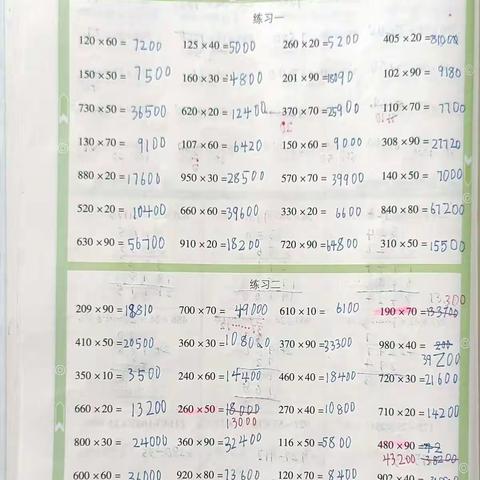 练习一
120×60= 7200 125×40=5000 260×20=5200 405×20=
150×50= 7500 160×30=4800 201×90= 102×90= 9180
730×50= 36500 620×20= 12400 370×70=25900 110×70= 7700
130×70= 9100 107×60= 6420 150×60= 9000 308×90=27720
880×20=17600 950×30=28500 570×70= 39900 140×50= 7000
520×20= 10400 660×60=39600 330×20= 6600 840×80=67200
630×90= 56700 910×20=18200 720×90=64800 310×50=15500
练习二
13300
209×90=18810 700×70= 49000 610×10= 6100 190×70=
410×50=20500 360×30= 370×90=33300 980×40=
39200
350×10= 3500 240×60= 14400 460×40=18400 720×30=21600
660×20= 13200 260×50= 270×40=10800 710×20=14200
13000
800×30= 24000 360×90=32400 116×50=5800 480×90=
43200
600×60= 920×80= 73600 120×70= 8400 902×40=